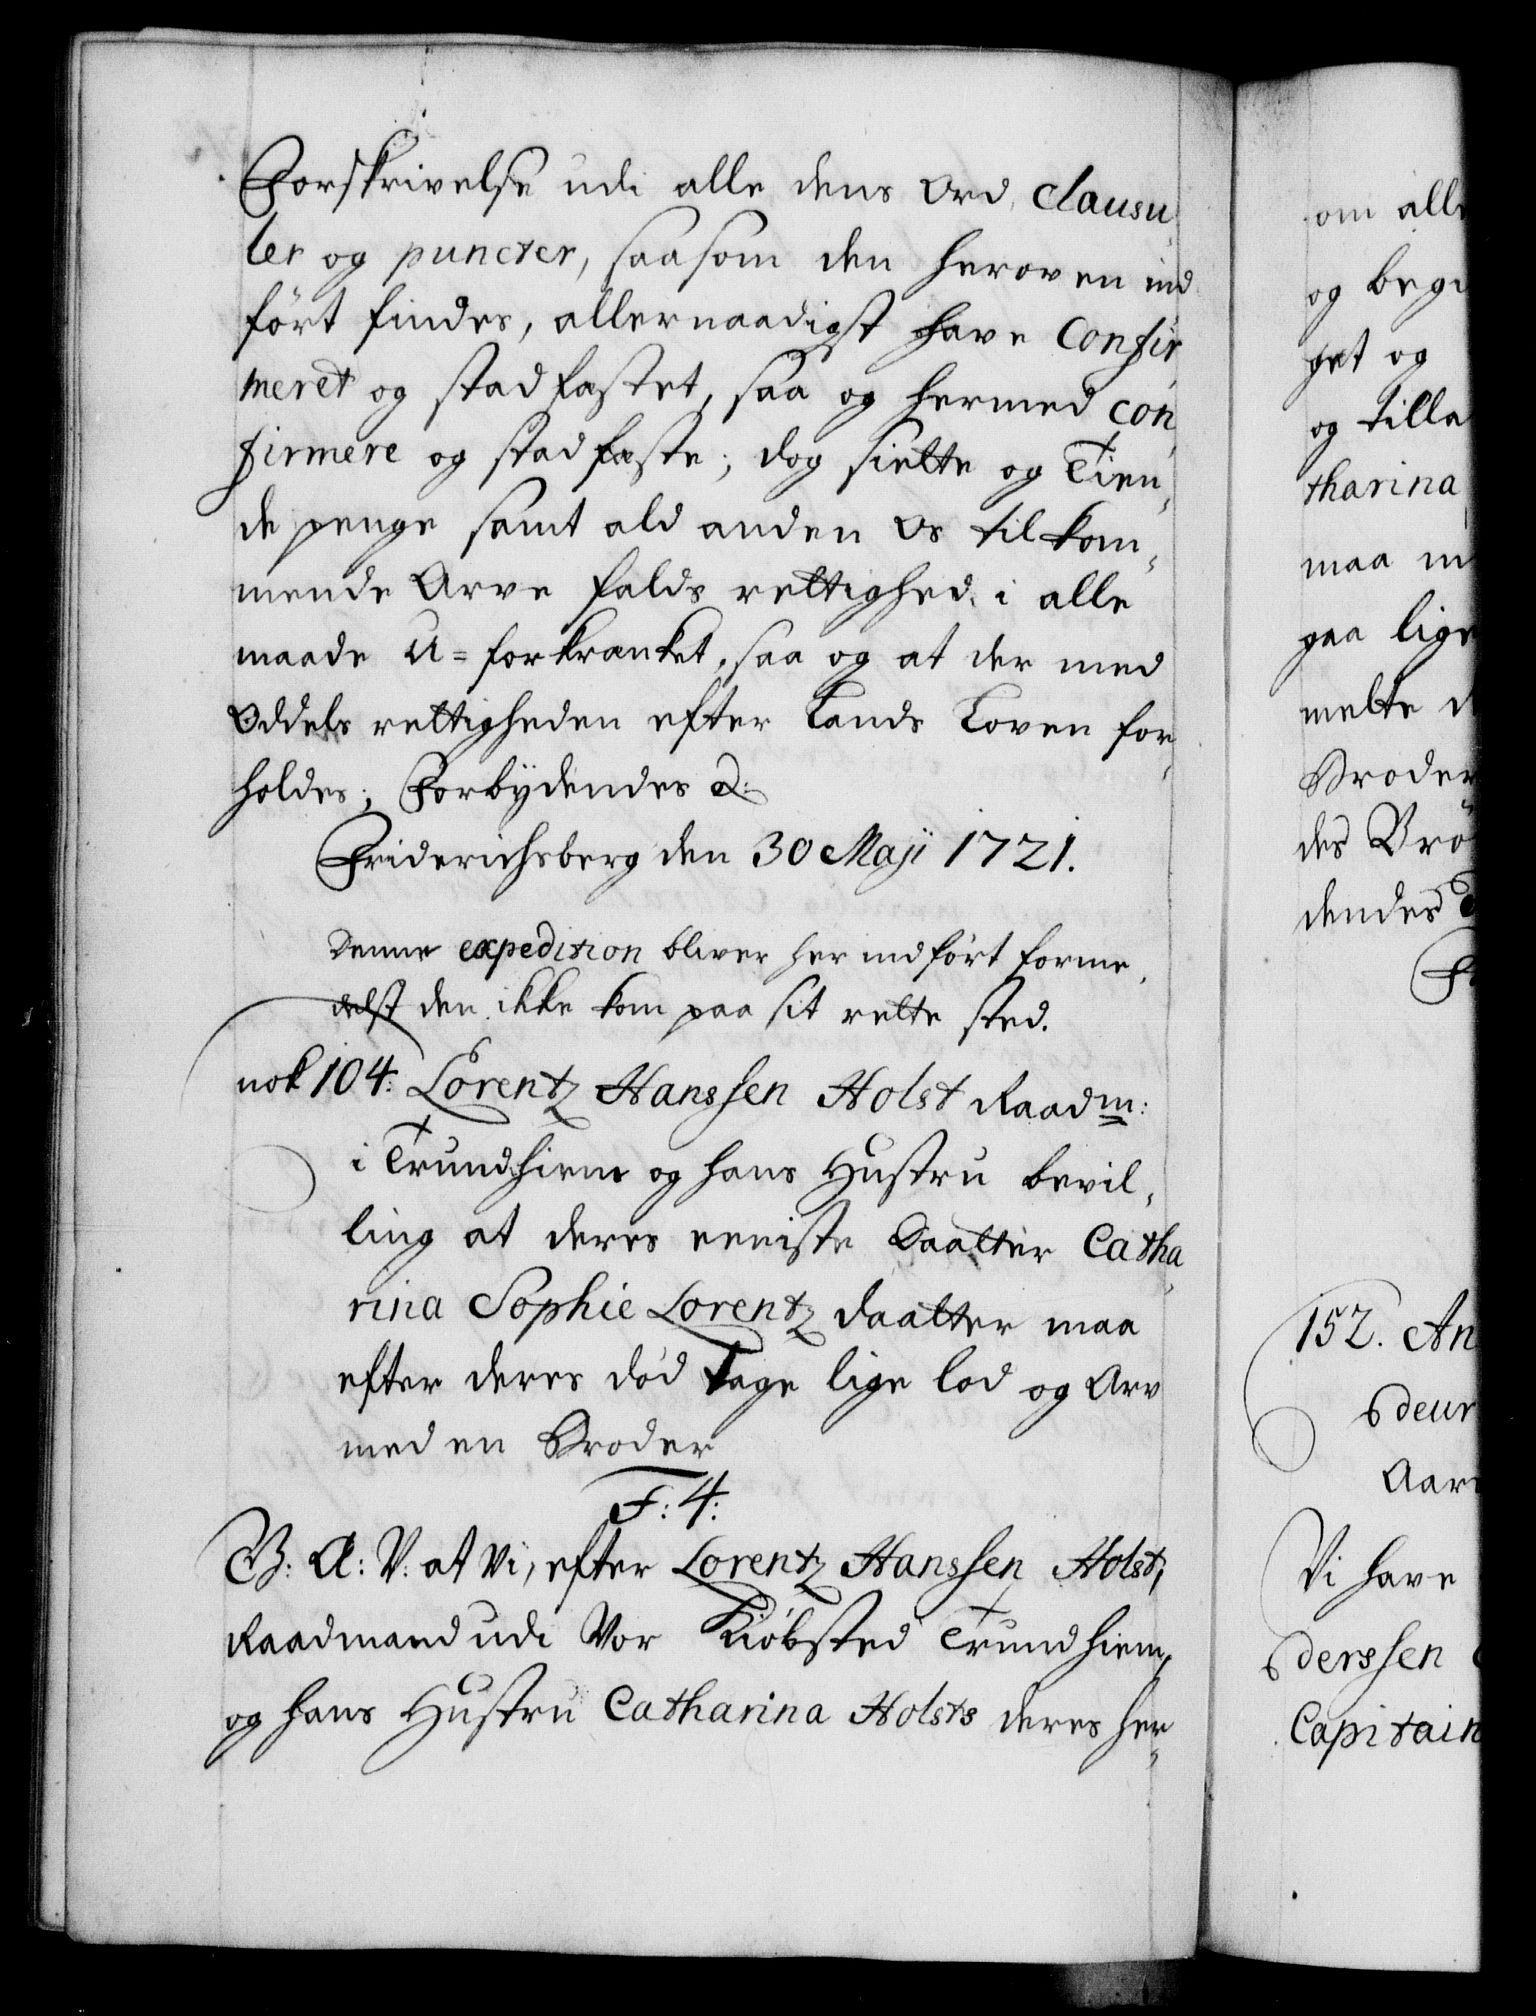 Forskrivelse udi alle dens Ord, clausu
ler og puncter, saasom den heroven ind
fört findes, allernaadigst have confir
meret og stadfæstet, saa og hermed con,
firmere og stadfæste; dog siette og Tien,
de penge samt ald anden Os tilkom,
mende Arve falds rettighed, i alle
maade U=forkrænket, saa og at der med
Oddels rettigheden efter Lands Loven for,
holdes; Forbÿdendes &:
Friderichsberg den 30 Maji 1721.
Denne expedition bliver her indfört forme,
delst den ikke kom paa sit rette sted.
nok 104: Lorentz Hanssen Holst Raadm:
i Trundhiem og hans Hustru bevil,
ling at deres eeniste Daatter Catha,
rina Sophie Lorentz daatter maa
efter deres död tage lige lod og Arv
med en Broder
F: 4:
G: A: V: at Vi, efter Lorentz Hanssen Holst,
Raadmand udi Vor Kiöbsted Trundhiem,
og hans Hustru Catharina Holsts deres her,
om alle
og
get og
og tilla
tharina
maa
gaa lige
melte
Broder
des Brö
dendes
152. An
deur
Vi have
derssen
Capitain